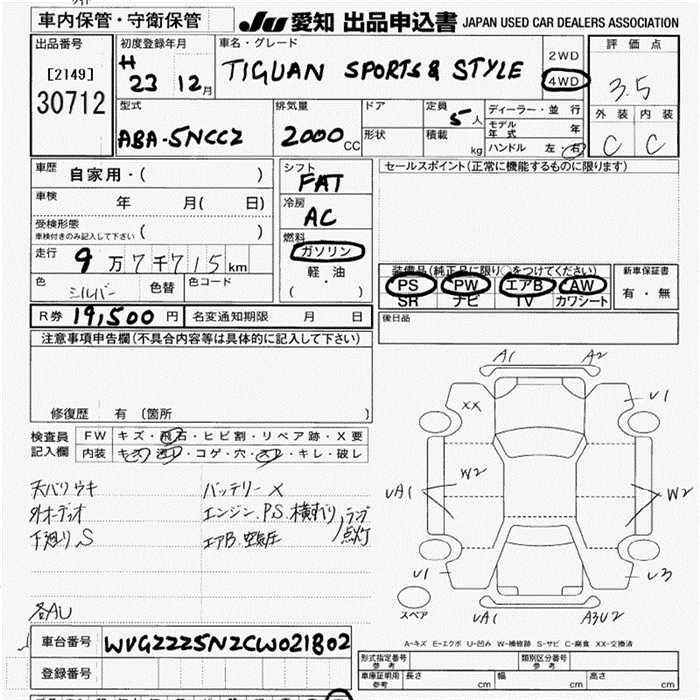 車内保管・守衛保管 JU 愛知 出品申込書 JAPAN USED CAR DEALERS ASSOCIATION
出品番号
[2149]
30712
初度登録年月
H 23 12月
車名・グレード
TIGUAN SPORTS & STYLE
2WD
4WD
評価点
3.5
外装 内装
C C
型式
ABA-5NCCZ
排気量
2000 CC
ドア
形状
定員
5人
積載 kg
ディーラー・並行
モデル年式 年
ハンドル 左 右
車歴
自家用・( )
車検
年 月( 日)
受検形態
車検付きのみ記入して下さい ( )
走行
9万7千715km
色
シルバー
色替
色コード
シフト
FAT
冷房
AC
燃料
ガソリン
軽・油
( ・ )
セールスポイント(正常に機能するものに限ります)
装備品(純正品に限り○をつけてください)
PS PW エアB AW
SR ナビ TV カワシート
新車保証書
有・無
後日品
R券 19,500円 名変通知期限 月 日
注意事項申告欄(不具合内容等は具体的に記入して下さい)
修復歴 有 (箇所 )
検査員
記入欄
FW キズ・飛石・ヒビ割・リペア跡・X要
内装 キズ・汚レ・コゲ・穴・スレ・キレ・破レ
天バリウキ
外オーディオ
下廻りS
バッテリーX
エンジン.P.S.横すべり
エアB.空気圧
ランプ点灯
各AU
A1 A2
XX
U1
W2
UA1
W2
U1
U3
スペア
UA1
A3U2
A-キズ E-エクボ U-凹み W-補修跡 S-サビ C-腐食 XX-交換済
車台番号 WVGZZZ5NZCW021802
登録番号
形式指定番号 参考
類別区分番号 参考
車庫証明用 参考 長さ cm 幅 cm 高さ cm